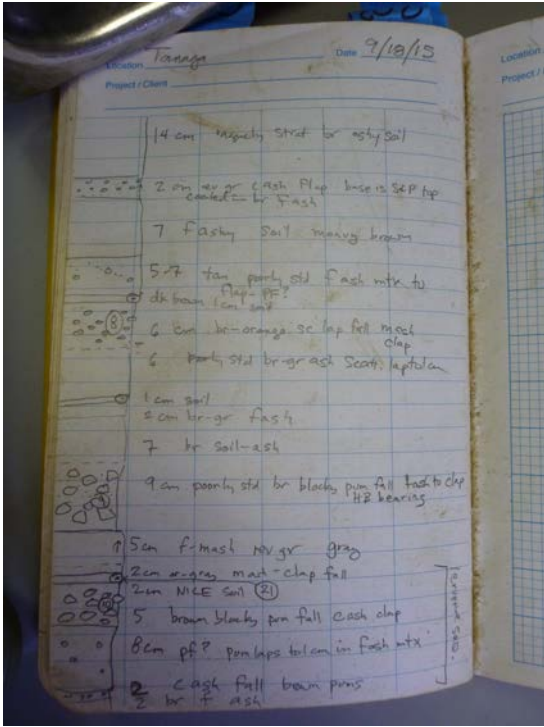 Location Tanaga Date 9/18/15
Location
Project / Client
Project /
14 cm vaguely strat br ashy soil
2 cm rev gr cash Flap base is S&P top
coated br Fash
7 fashy soil mauvy brown
5-7 tan poorly std f ash mtx to
flap - pf?
dk brown 1 cm soil
6 cm br-orange sc lap fall mash
clap
6 poorly std br-gr ash Scatt. lap to 1cm
1 cm soil
2 cm br-gr fash
7 br soil-ash
9 cm poorly std br blocky pum fall fash to clap
HB bearing
5 cm f-mash rev gr gray
2 cm or-gray mash-clap fall
2 cm NICE soil 21
5 brown blocky pum fall cash clap
8 cm pf? pum laps to 1cm in fash mtx
2 cash fall brown pums
2 br f ash
8